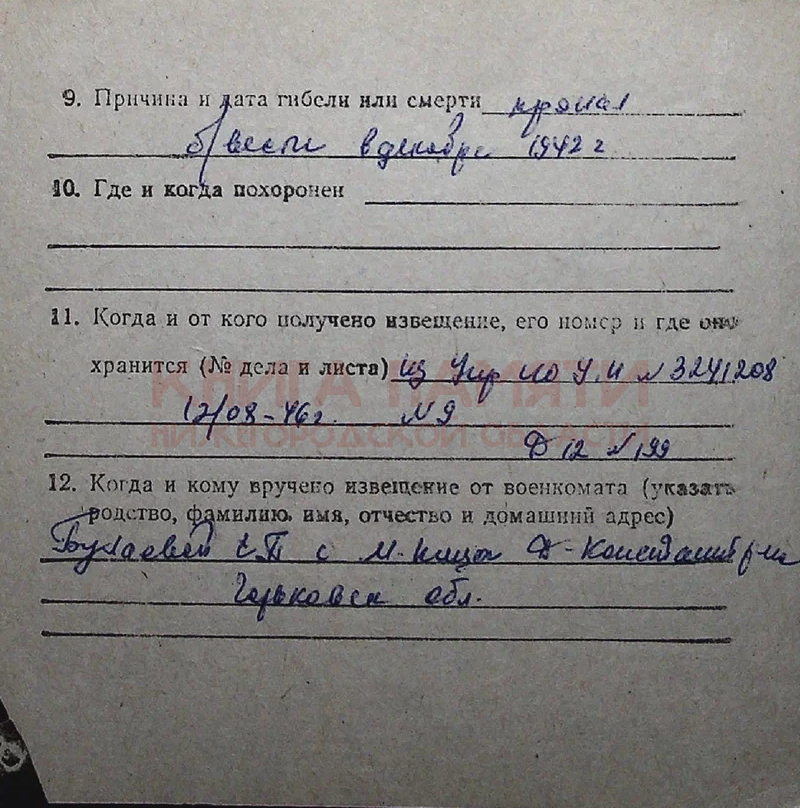 9. Причина и дата гибели или смерти пропал
б/вести в декабре 1942 г
10. Где и когда похоронен
11. Когда и от кого получено извещение, его номер и где оно
хранится (№ дела и листа) из Упр по У.И №
12/08-46г. №9
Д 12 №199
12. Когда и кому вручено извещение от военкомата (указать
родство, фамилию, имя, отчество и домашний адрес)
с М- Д-Константин р-на
Горьковск обл.
КНИГА ПАМЯТИ
НИЖЕГОРОДСКОЙ ОБЛАСТИ